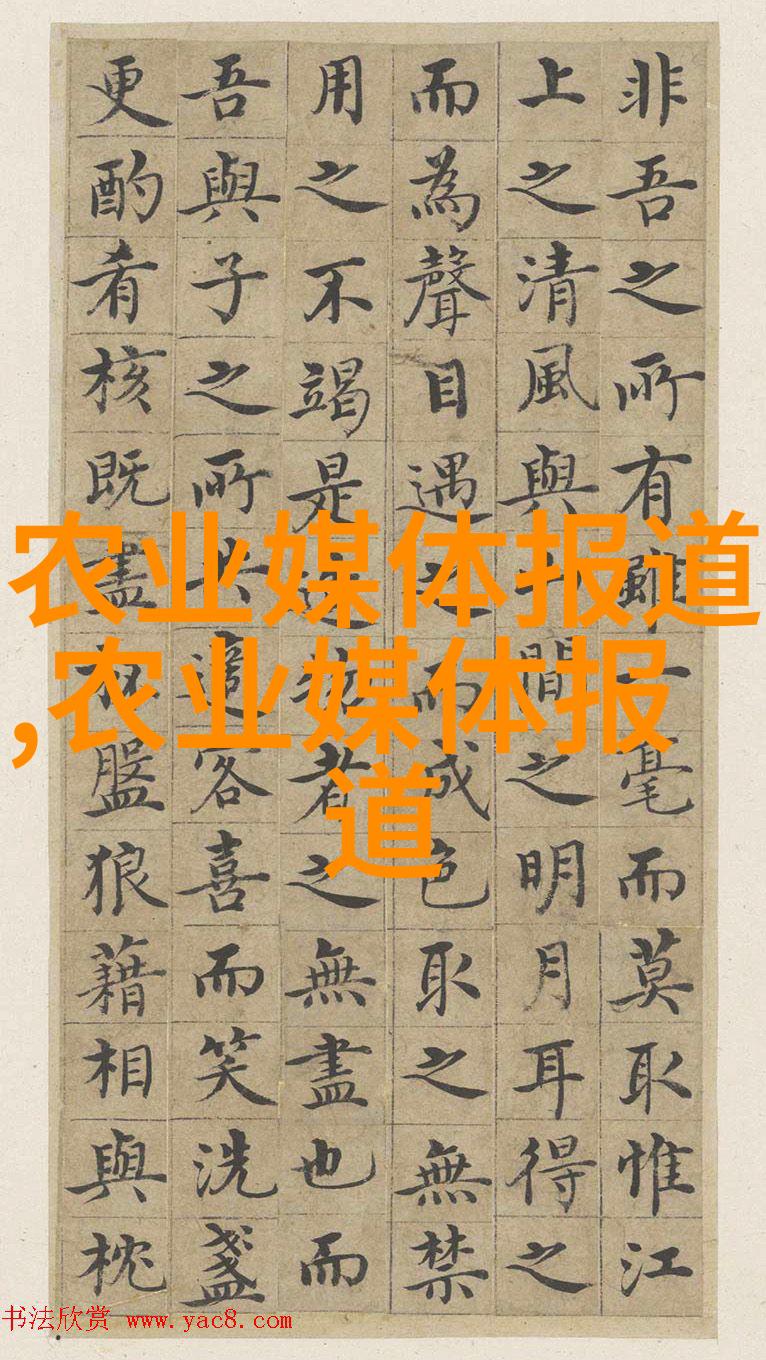 非吾之所有雖一毫而莫取惟江
上之清風與山間之明月耳得之
而為聲目遇之而成色取之無禁
用之不竭是造物者之無盡也而
吾與子之所共適客喜而笑洗盞
更酌肴核既盡杯盤狼藉相與枕
农业媒体报道
,农业媒体报
道
书法欣赏 www.yac8.com